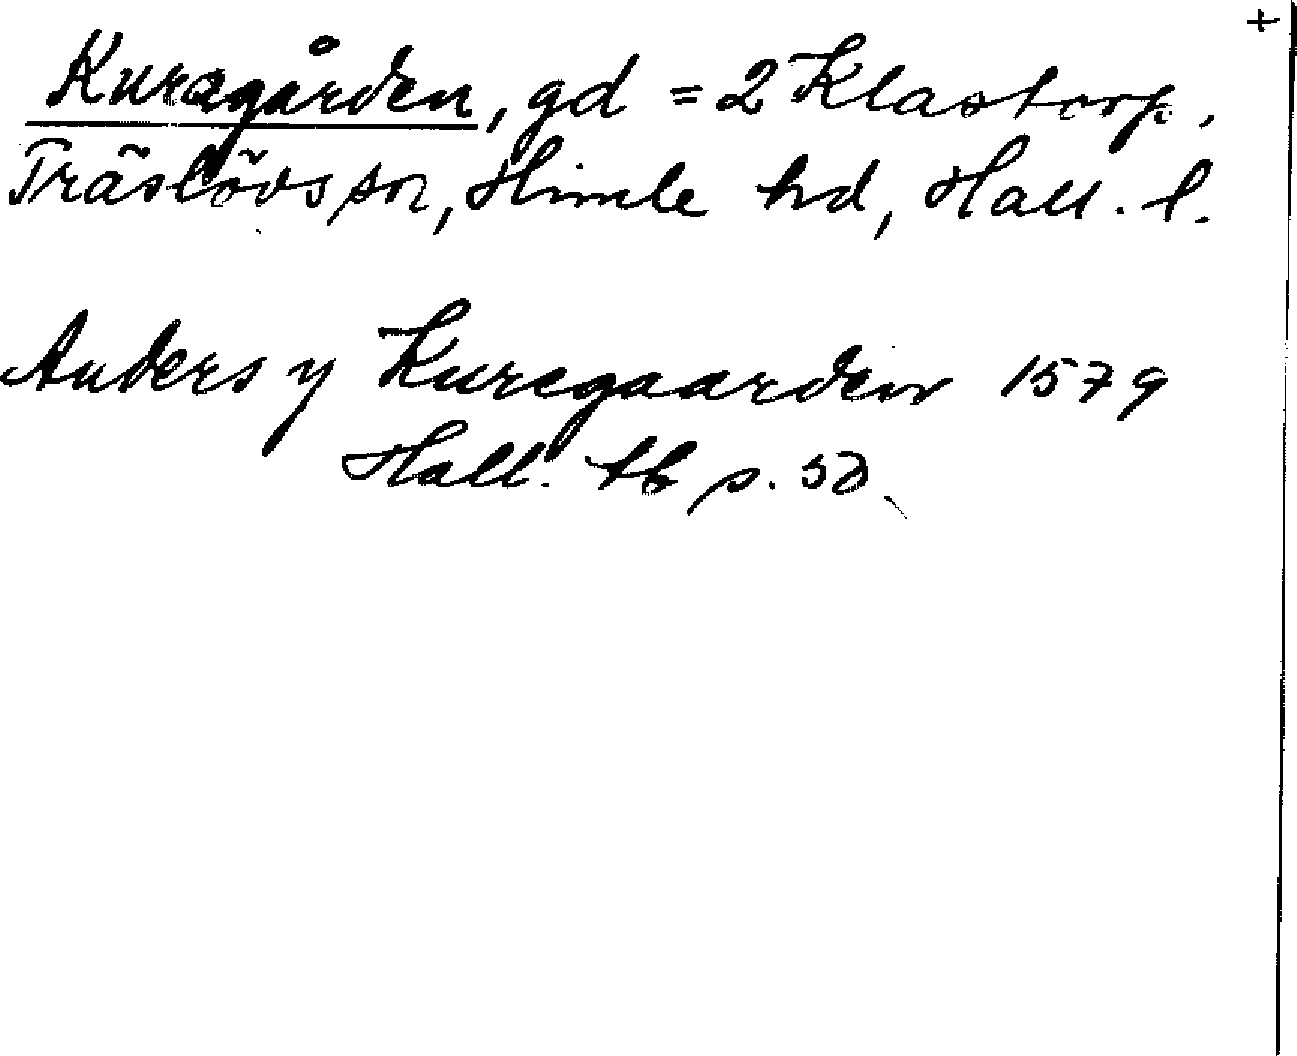 +
Kuragården, gd = 2 Klastorp,
Träslövs sn, Himle hd, Hall. l.
Anders y Kuregaarden 1579
Hall. tb p. 50